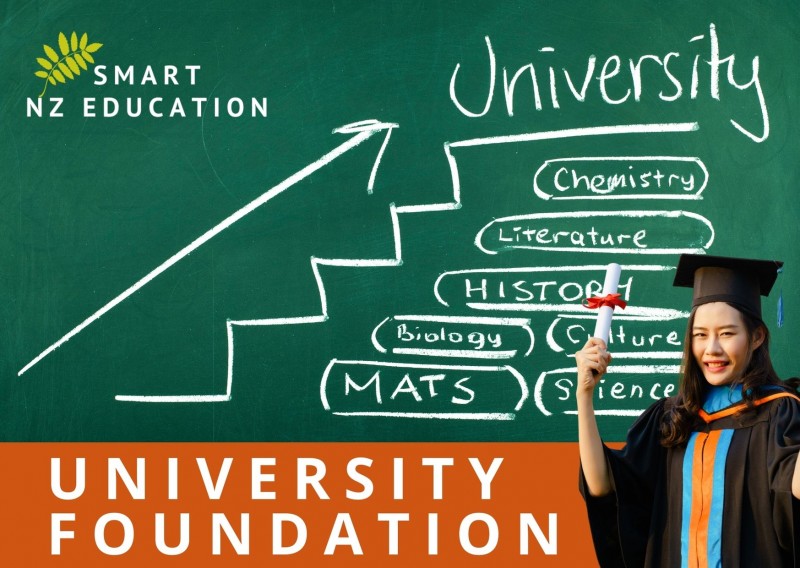 SMART
NZ EDUCATION
University
Chemistry
Literature
HISTORY
Biology Culture
MATS Science
UNIVERSITY
FOUNDATION